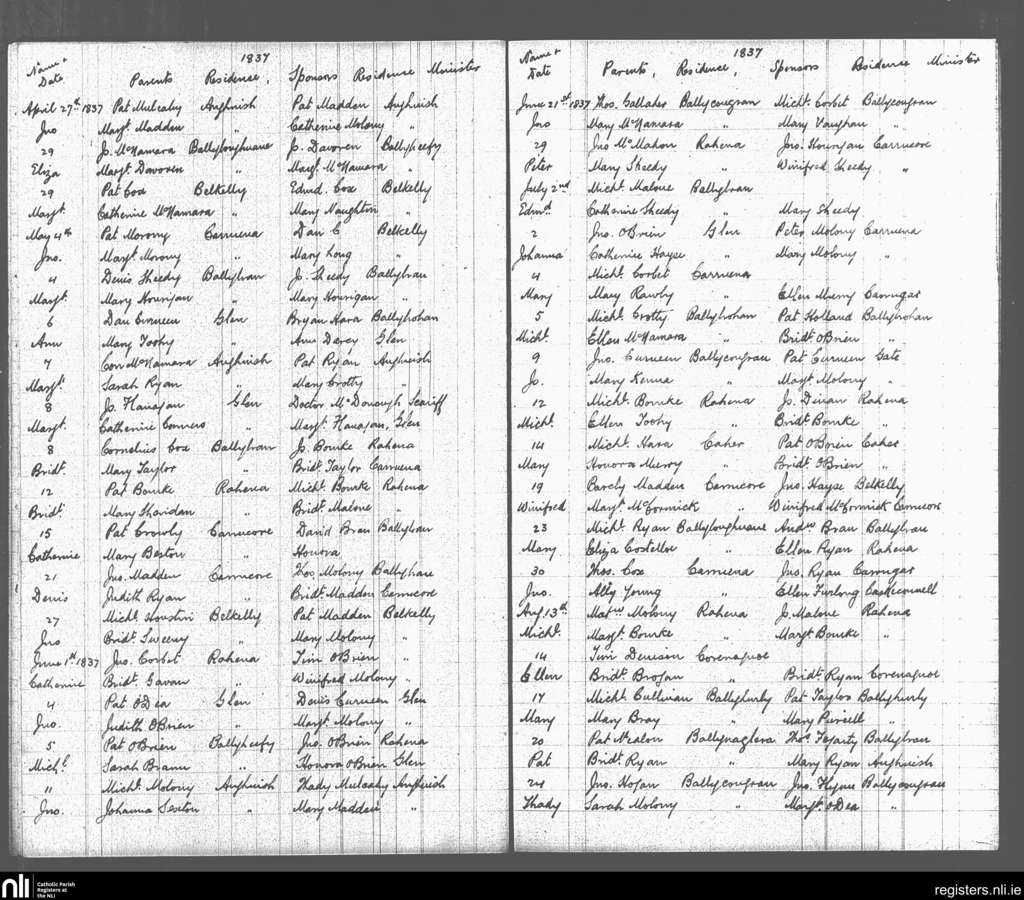 1837
Name + Date Parents Residence, Sponsors Residence Minister
April 27th 1837 Pat Mulcahy Aughnish Pat Madden Aughnish
Jno Margt. Madden " Catherine Molony "
29 J. McNamara Ballyloughnane J. Davoren Ballyheefy
Eliza Margt Davoren " Margt. McNamara "
29 Pat Cox Belkelly Edmd. Cox Belkelly
Margt. Catherine McNamara " Mary Naughton "
May 4th Pat Morony Carruena Dan C Belkelly
Jno. Margt. Morony " Mary Long "
4 Denis Sheedy Ballybran J. Sheedy Ballybran
Margt. Mary Hourigan " Mary Hourigan "
6 Dan Curueen Glen Bryan Hara Ballyhohan
Ann Mary Toohy " Ann Darcy Glen
7 Con McNamara Aughnish Pat Ryan Aughnish
Margt. Sarah Ryan " Mary Crotty "
8 Jo. Hanagan Glen Doctor McDonough Scariff
Margt. Catherine Connors " Margt. Hanagan, Glen
8 Cornelius Cox Ballybran J. Bourke Rahena
Bridt. Mary Taylor " Bridt. Taylor Carruena
12 Pat Bourke Rahena Micht. Bourke Rahena
Bridt. Mary Sheridan " Bridt. Malone "
15 Pat Crowly Carrucore David Bran Ballybran
Catherine Mary Boston " Honora
21 Jno. Madden Carrucore Thos. Molony Ballybrane
Denis Judith Ryan " Bridt. Madden Carrucore
27 Micht. Belkelly Pat Madden Belkelly
Jno Bridt. Sweeny " Mary Molony "
June 1st 1837 Jno. Corbet Rahena Tim OBrien "
Catherine Bridt. Gavan " Winifred Molony "
4 Pat O'Dea Glen Denis Curueen Glen
Jno. Judith OBrien " Margt. Molony "
5 Pat OBrien Ballyheefy Jno. OBrien Rahena
Michl. Sarah " Honora OBrien Glen
11 Micht. Molony Aughnish Thady Mulcahy Aughnish
Jno. Johanna Sexton " Mary Madden "
1837
Name + Date Parents, Residence, Sponsors Residence Minister
June 21st 1837 Thos. Gallaher Ballycougran Micht. Corbet Ballycougran
Jno Mary McNamara " Mary Vaughan "
29 Jno McMahon Rahena Jno. Hourigan Carrucore
Peter Mary Sheedy " Winifred Sheedy "
July 2nd Micht. Malone Ballybran
Edmd. Catherine Sheedy " Mary Sheedy
2 Jno. OBrien Glen Peter Molony Carruena
Johanna Catherine Hayse " Mary Molony "
4 Micht. Corbet Carruena
Mary Mary Rawly " Ellen Murry Carrugar
5 Micht. Crotty Ballyhohan Pat Holland Ballyhohan
Micht. Ellen McNamara " Bridt. OBrien "
9 Jno. Curueen Ballycougran Pat Curueen Gate
Jo. Mary Kenna " Margt Molony "
12 Micht. Bourke Rahena Jo. Dinan Rahena
Micht. Ellen Toohy " Bridt Bourke "
14 Micht. Hara Caher Pat OBrien Caher
Mary Honora Murry " Bridt. OBrien "
19 Madden Carrucore Jno. Hayse Belkelly
Winifred Margt. McCormick " Winifred McCormick Carrucore
23 Micht. Ryan Ballyloughnane Andw. Bran Ballybran
Mary Eliza Costelloe " Ellen Ryan Rahena
30 Thos. Cox Carruena Jno. Ryan Carrugar
Jno. Ally Young " Ellen Furlong
Aug 13th Matw. Molony Rahena J. Malone Rahena
Micht. Margt. Bourke " Margt Bourke "
14 Tim Denison Corenaguoe
Ellen Bridt. Brogan " Bridt Ryan Corenaguoe
17 Micht. Cullinan Ballyhurly Pat Taylor Ballyhurly
Mary Mary Bray " Mary Purcell "
20 Pat Nealon Ballynaglera Thos. Fogarty Ballybran
Pat Bridt. Ryan " Mary Ryan Aughnish
24 Jno. Hogan Ballycougran Jno. Hynes Ballycougran
Thady Sarah Molony " Margt. O'Dea "
nli Catholic Parish Registers at the NLI
registers.nli.ie